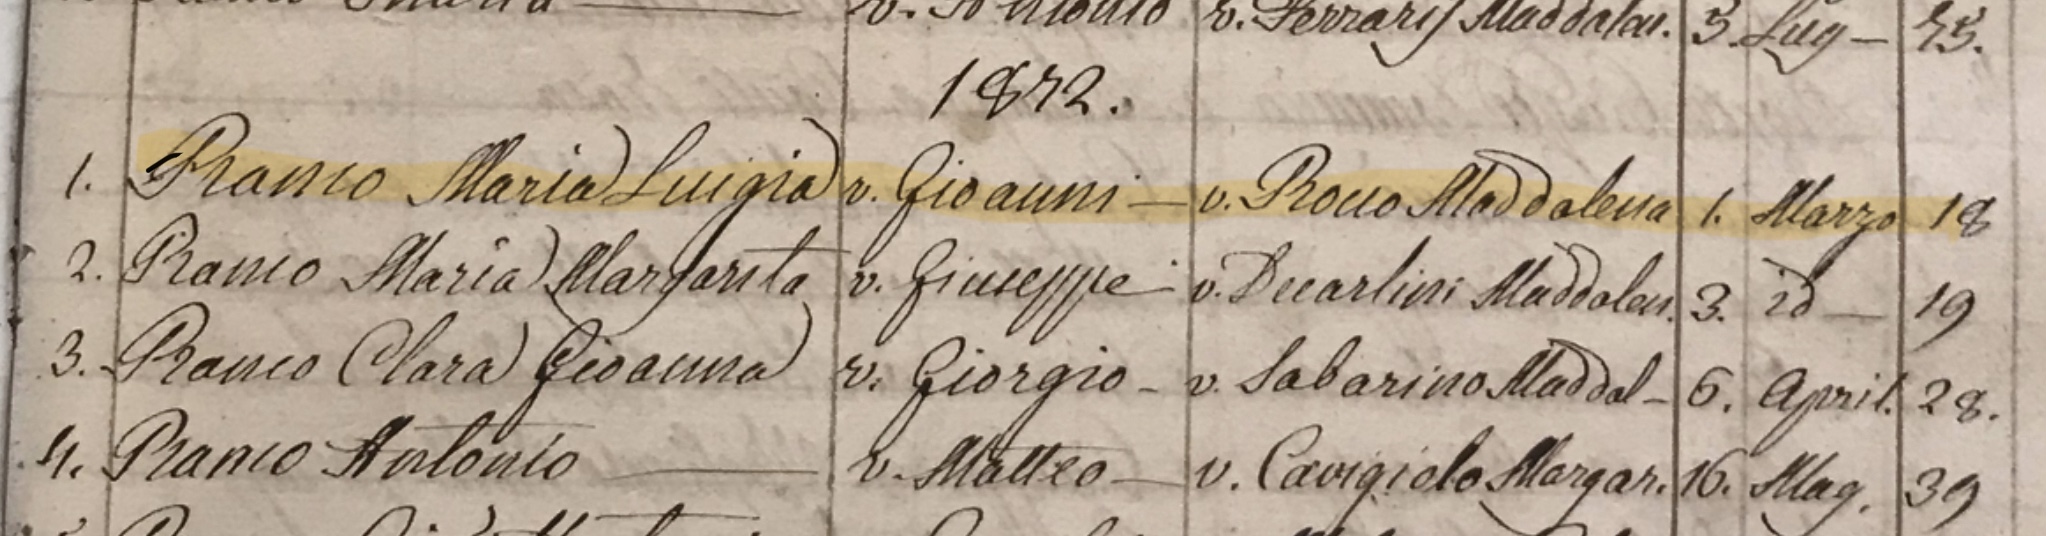 v. Antonio v. Ferraris Maddalen. 3. Lug — 25.
1872.
1. Ramo Maria Luigia v. Gioanni — v. Rocco Maddalena 1. Marzo 18
2. Ramo Maria Margarita v. Giuseppe - v. Decarlini Maddalen. 3. id — 19
3. Ramo Clara Gioanna v. Giorgio - v. Sabarino Maddal - 6. April. 28.
4. Ramo Antonio — v. Matteo — v. Cavigiolo Margar. 16. Mag. 39